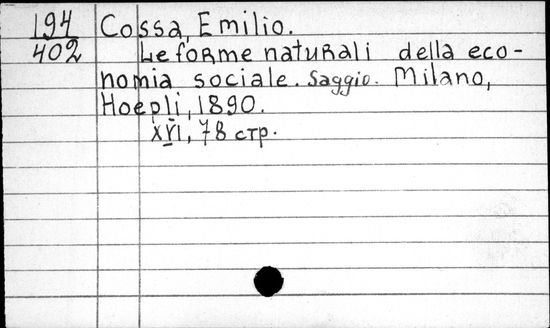 194 Cossa, Emilio.
402 Le forme naturali della eco-
nomia sociale. Saggio. Milano,
Hoepli, 1890.
XVI, 78 стр.